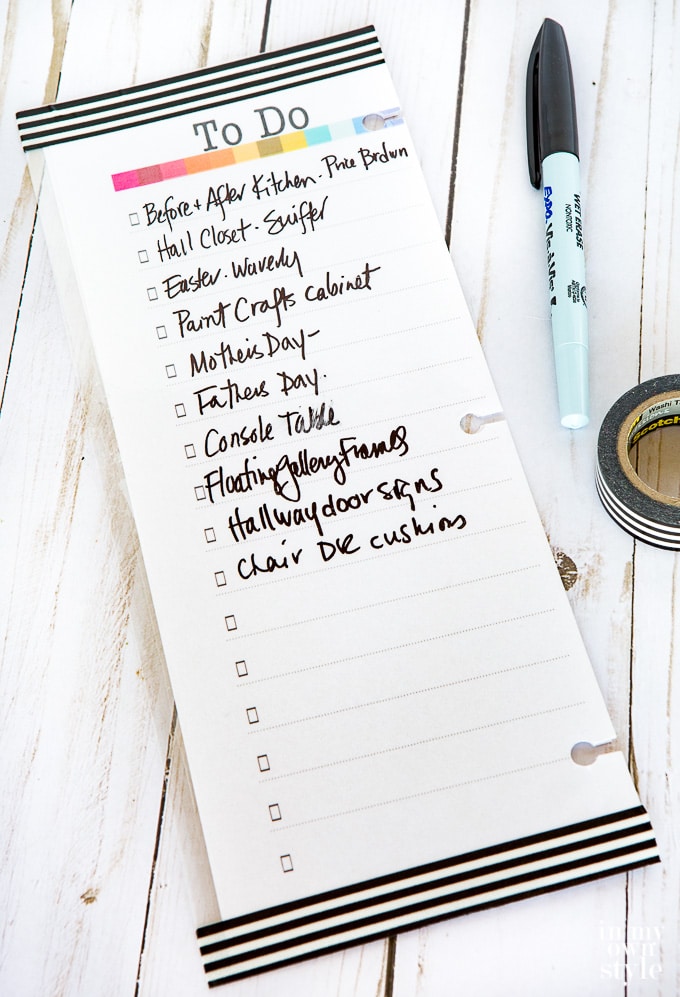 To Do
Before + After Kitchen. Brown
Hall Closet. Swiffer
Easter. Waverly
Paint Crafts cabinet
Mother's Day -
Fathers Day.
Console Table
Floating Gallery Frames
Hallway door signs
Chair DR cushions
WET ERASE
NONTOXIC
EXPO Vis-à-Vis
Washi T
Scotch
in my
own
style